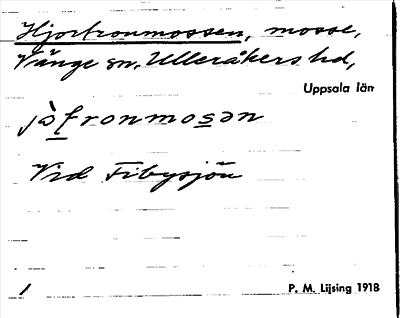 Hjortronmossen, mosse,
Vänge sn, Ulleråkers hd,
Uppsala län
jòʈronmosən
Vid Fibysjön
1 P. M. Lijsing 1918